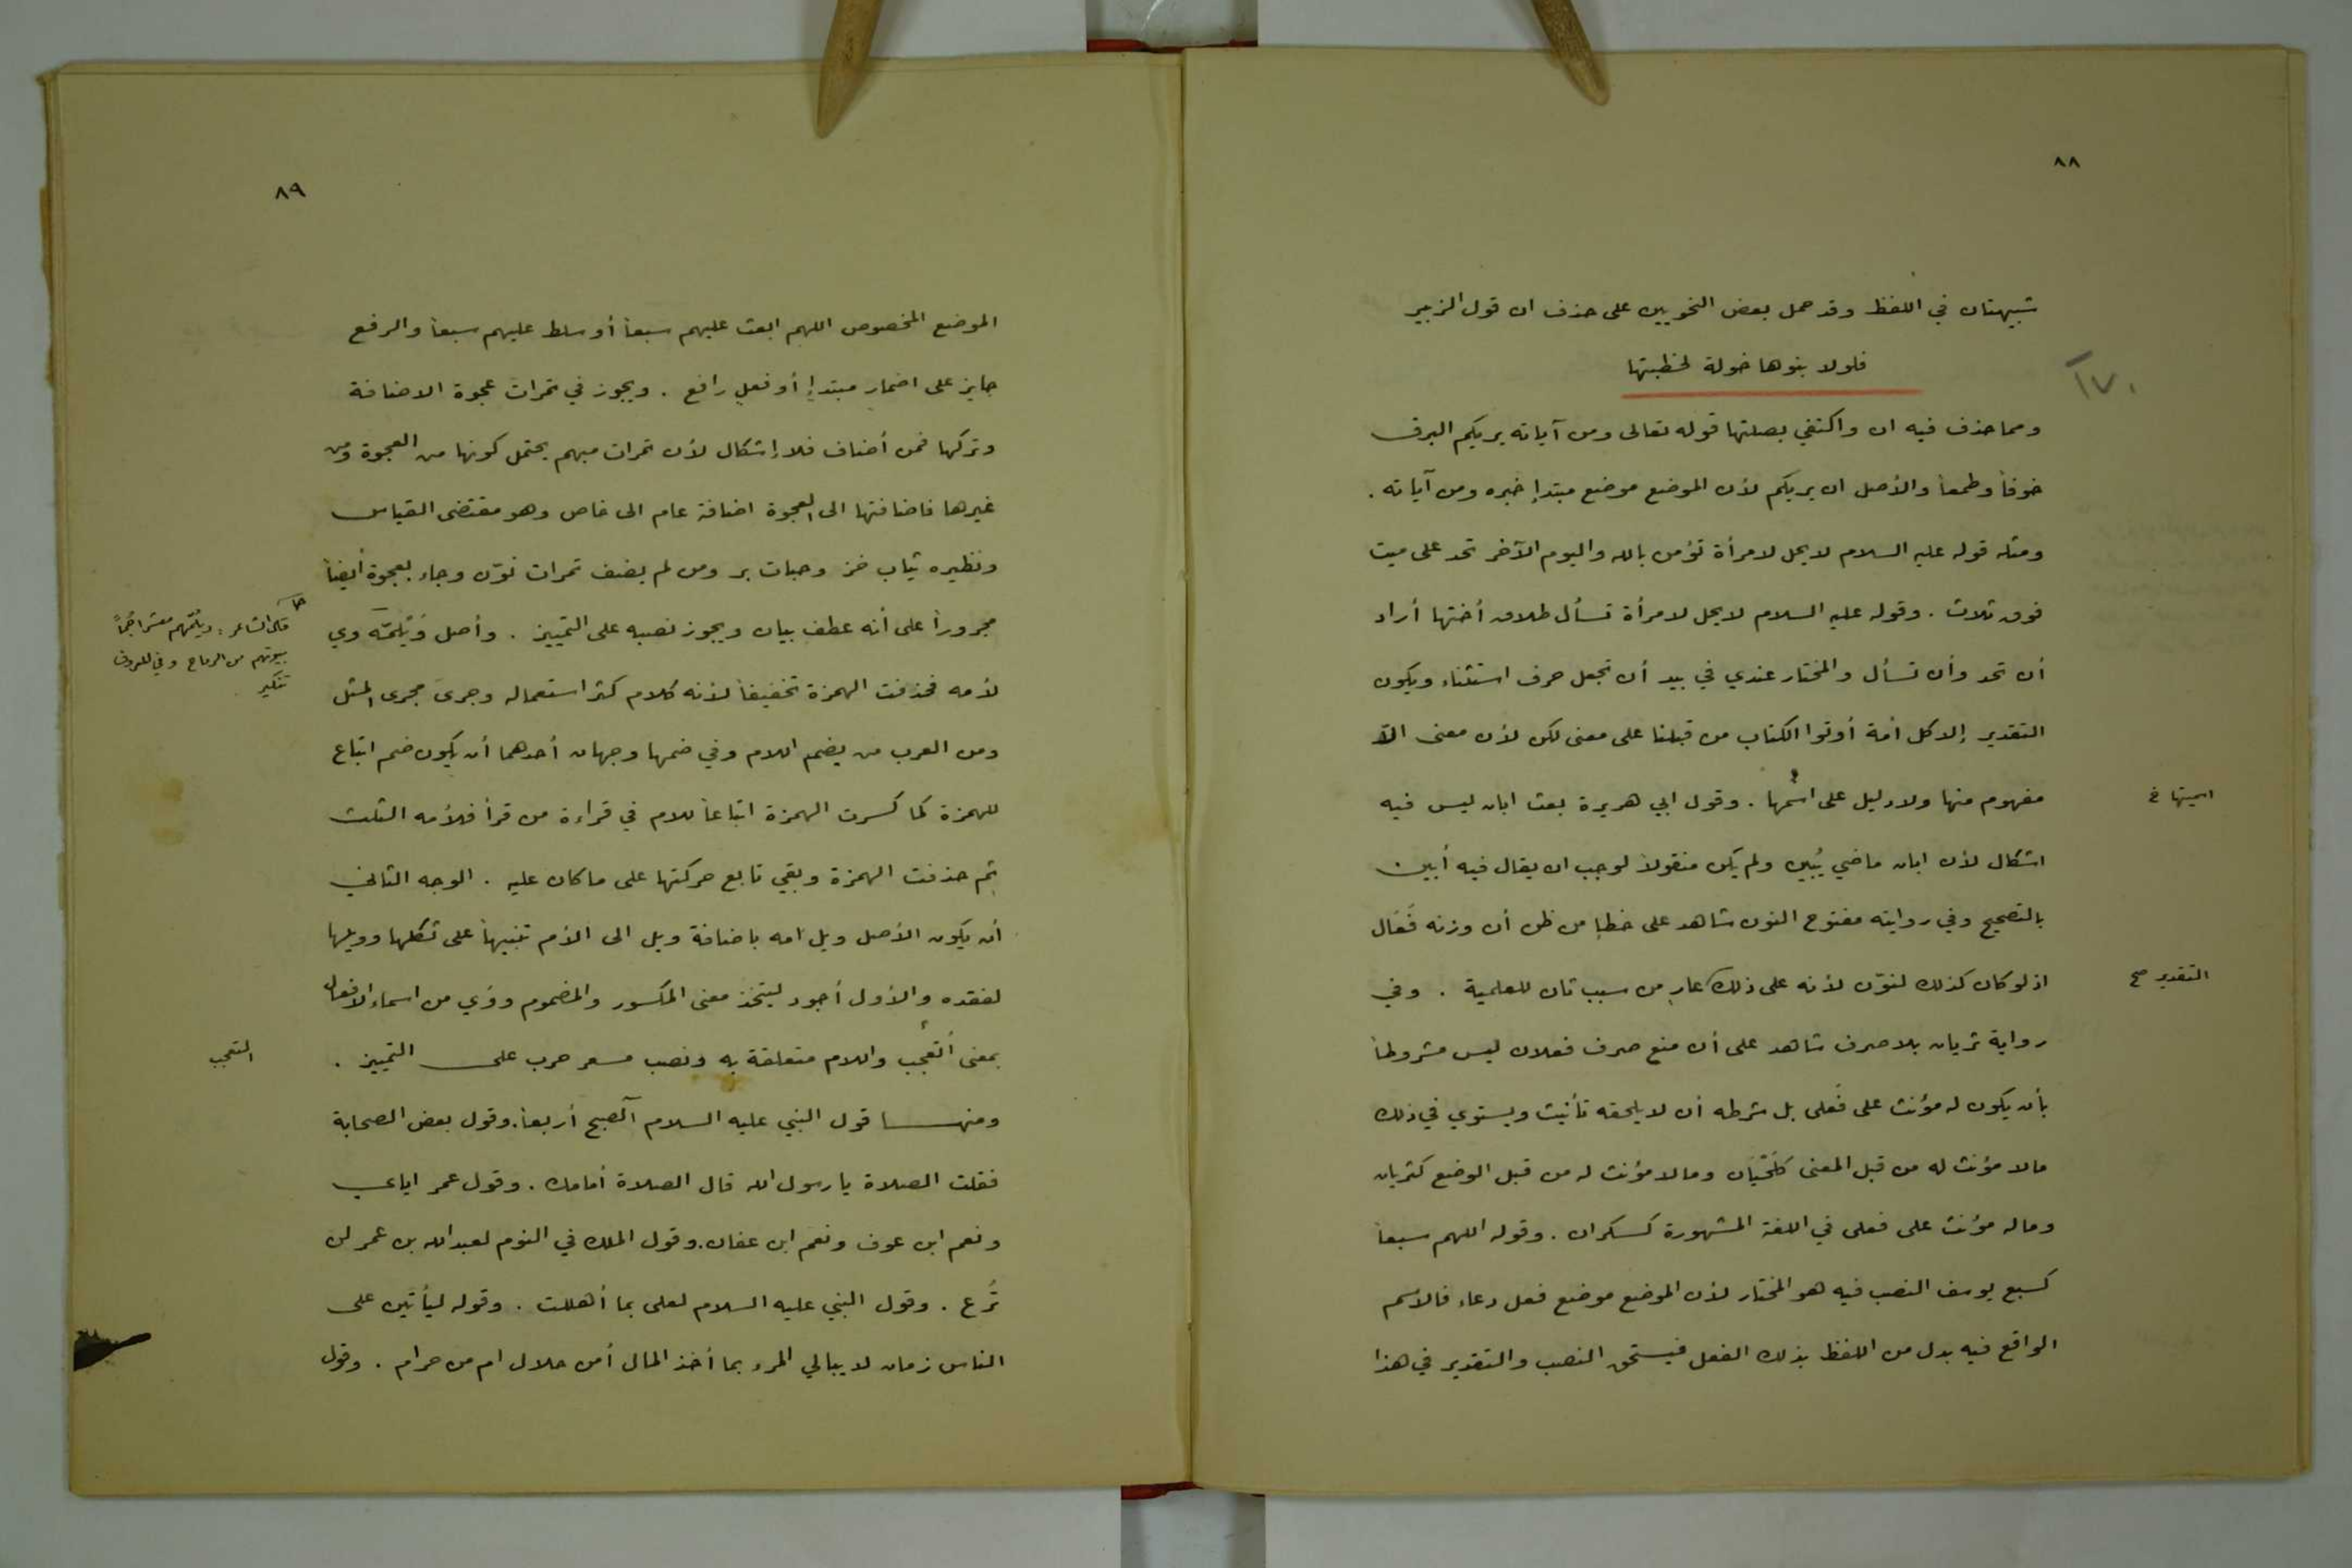 ٨٨
شبيهتان في اللفظ وقد حمل بعض النحويين على حذف ان قول الزبير
فلولا بنوها حولة لخطبتها
١٧٠
ومما حذف فيه ان واكتفي بصلتها قوله تعالى ومن آياته يريكم البرق
خوفاً وطمعاً والأصل ان يريكم لأن الموضع موضع مبتدإ خبره ومن آياته .
ومثله قوله عليه السلام لا يحل لامرأة تؤمن بالله واليوم الآخر تحد على ميت
فوق ثلاث . وقوله عليه السلام لا يحل لامرأة تسأل طلاق أختها أراد
أن تحد وأن تسأل والمختار عندي في بيد أن تجعل حرف استثناء ويكون
التقدير إلا كل أمة أوتوا الكتاب من قبلنا على معنى لكن لأن معنى الاّ
مفهوم منها ولا دليل على اسمها . وقول ابي هريرة بعث ابان ليس فيه
اسميتها خ
اشكال لأن ابان ماضي يُبين ولم يكن منقولاً لوجب ان يقال فيه أبين
بالتصحيح وفي روايته مفتوح النون شاهد على خطإ من ظن أن وزنه فَعَال
اذ لو كان كذلك لنوّن لأنه على ذلك عار من سبب ثان للعلمية . وفي
التقدير صح
رواية ثريان بلا صرف شاهد على أن منع صرف فعلان ليس مشروطاً
بأن يكون له مؤنث على فَعلى بل شرطه أن لا يلحقه تأنيث ويستوي في ذلك
مالا مؤنث له من قبل المعنى كلَحْيَان ومالا مؤنث له من قبل الوضع كثريان
وماله مؤنث على فعلى في اللغة المشهورة كسكران . وقوله اللهم سبعاً
كسبع يوسف النصب فيه هو المختار لأن الموضع موضع فعل دعاء فالاسم
الواقع فيه بدل من اللفظ بذلك الفعل فيستحق النصب والتقدير في هذا
٨٩
الموضع المخصوص اللهم ابعث عليهم سبعاً أو سلط عليهم سبعاً والرفع
جايز على اضمار مبتدإ أو فعل رافع . ويجوز في تمرات عجوة الاضافة
وتركها فمن أضاف فلا إشكال لأن تمرات مبهم يحتمل كونها من العجوة ومن
غيرها فاضافتها الى العجوة اضافة عام الى خاص وهو مقتضى القياس
ونظيره ثياب خز وحبات بر ومن لم يضف تمرات نوّن وجاء بعجوة أيضاً
مجروراً على أنه عطف بيان ويجوز نصبه على التمييز . وأصل وَيْلمّه وي
قال الشاعر : ويلمّهم معشراً جمّاً
بيوتهم من الرماح وفي المعروف
تنكير
لأمه فحذفت الهمزة تخفيفاً لأنه كلام كثر استعماله وجرى مجرى المثل
ومن العرب من يضم اللام وفي ضمها وجهان أحدهما أن يكون ضم اتباع
للهمزة كما كسرت الهمزة اتباعاً للام في قراءة من قرأ فلأمه الثلث
ثم حذفت الهمزة وبقي تابع حركتها على ما كان عليه . الوجه الثاني
أن يكون الأصل ويل امه باضافة ويل الى الأم تنبيهاً على ثكلها وويلها
لفقده والأول أجود ليتحد معنى المكسور والمضموم ووَي من اسماء الافعال
بمعنى أتعجب واللام متعلقة به ونصب مسعر حرب على التمييز .
التعجب
ومنها قول النبي عليه السلام آلصبح أربعاً . وقول بعض الصحابة
فقلت الصلاة يا رسول الله قال الصلاة أمامك . وقول عمر اياي
ونعم ابن عوف ونعم ابن عفان . وقول الملك في النوم لعبد الله بن عمر لن
تُرع . وقول النبي عليه السلام لعلى بما أهللت . وقوله ليأتين على
الناس زمان لا يبالي المرء بما أخذ المال أمن حلال ام من حرام . وقول